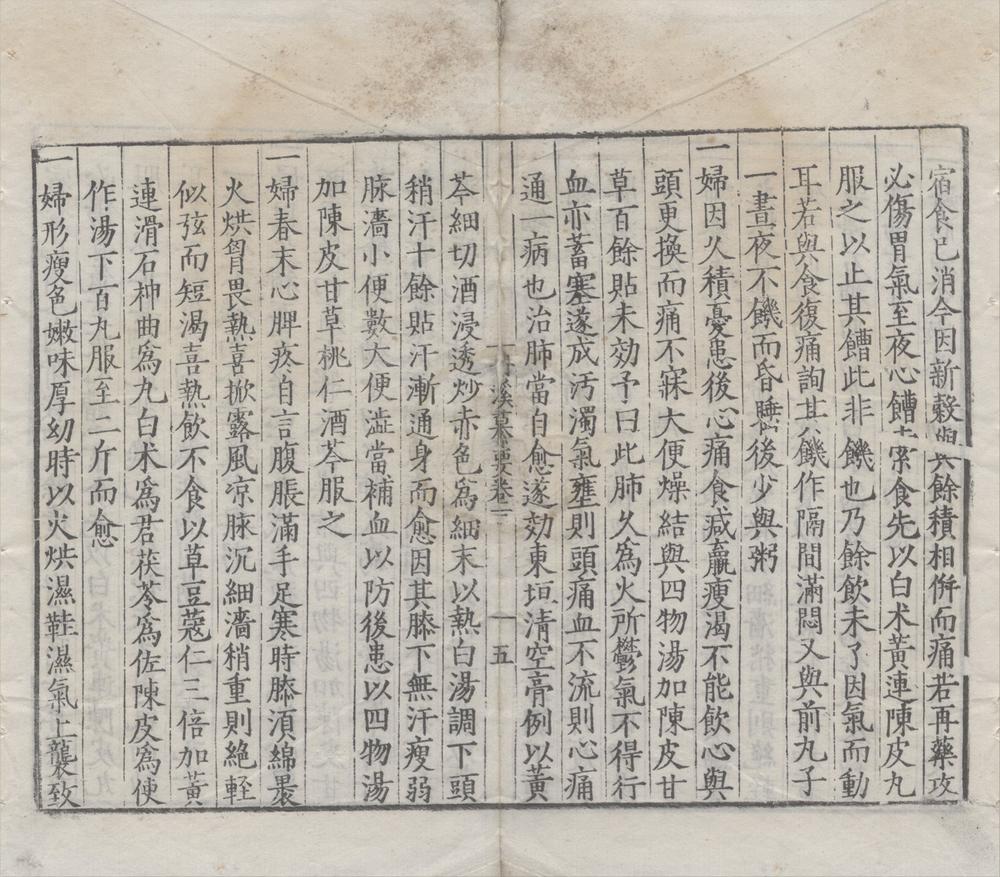 宿食已消今因新穀與餘積相倂而痛若再藥攻
必傷胃氣至夜心饘索食先以白术黃連陳皮丸
服之以止其饘此非饑也乃餘飲未了因氣而動
耳若與食復痛詢其饑作隔間滿悶又與前丸子
一晝夜不饑而昏睡後少與粥
一婦因久積憂患後心痛食減羸瘦渴不能飲心與
頭更換而痛不寐大便燥結與四物湯加陳皮甘
草百餘貼未効予曰此肺久為火所鬱氣不得行
血亦蓄塞遂成汚濁氣壅則頭痛血不流則心痛
通一病也治肺當自愈遂効東垣清空膏例以黃
溪纂要卷二 五
芩細切酒浸透炒赤色為細末以熱白湯調下頭
稍汗十餘貼汗漸通身而愈因其膝下無汗瘦弱
脉濇小便數大便澁當補血以防後患以四物湯
加陳皮甘草桃仁酒芩服之
一婦春末心脾疼自言腹脹滿手足寒時膝須綿褁
火烘胷畏熱喜掀露風凉脉沉細濇稍重則絶輕
似弦而短渴喜熱飲不食以草豆蔻仁三倍加黃
連滑石神曲為丸白术為君茯苓為佐陳皮為使
作湯下百丸服至二斤而愈
一婦形瘦色嫩味厚幼時以火烘濕鞋濕氣上襲致